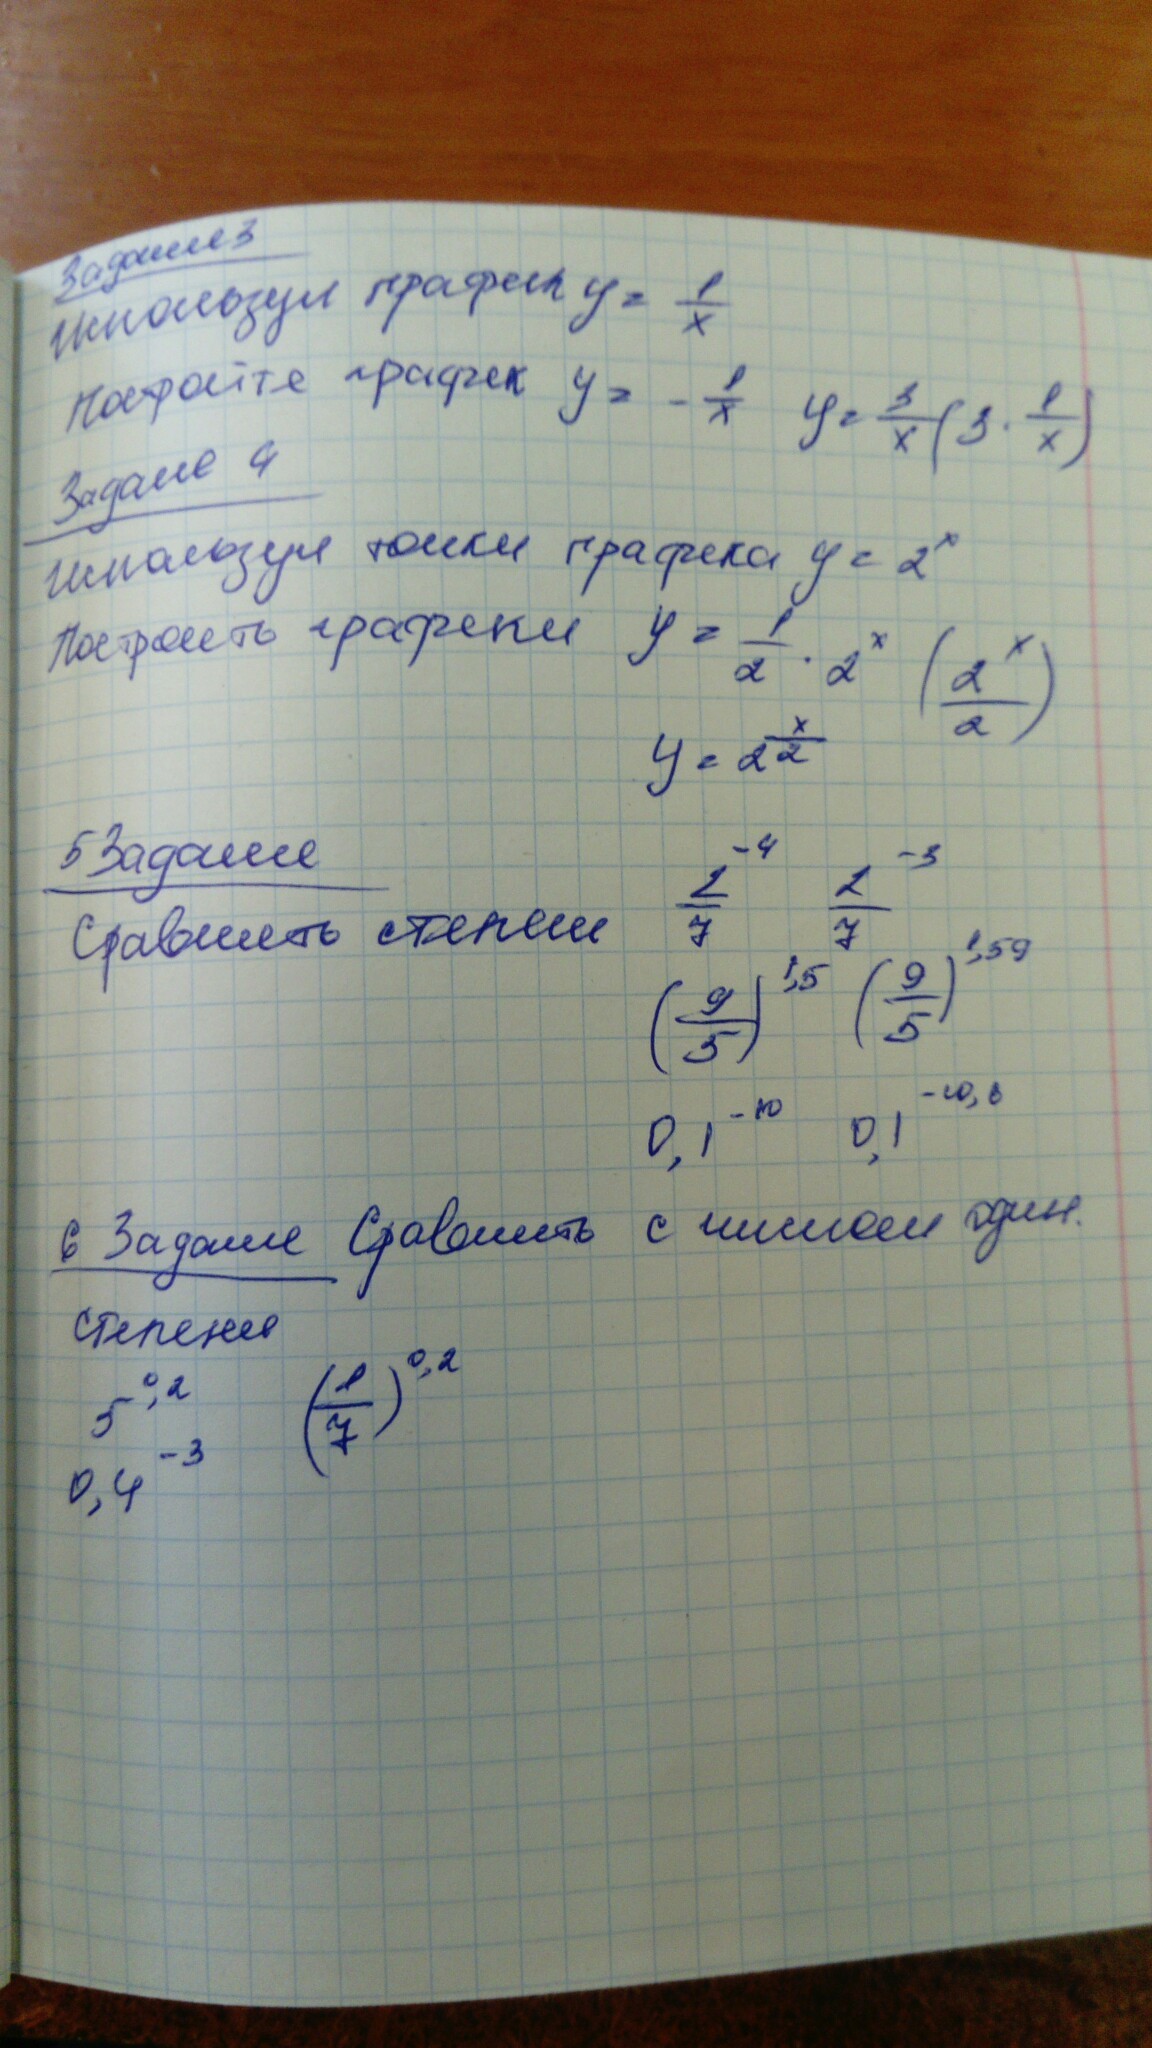 Задание 3
Используя график y = 1/x
Постройте график y = - 1/x y = 3/x (3 · 1/x)
Задание 4
Используя точки графика y = 2^x
Построить графики y = 1/2 · 2^x (2^x/2)
y = 2^(x/2)
5 Задание
Сравнить степени 2/7^-4 2/7^-3
(9/5)^1,5 (9/5)^1,59
0,1^-10 0,1^-10,8
6 Задание Сравнить с числом один.
степени
5^0,2 (1/7)^0,2
0,4^-3